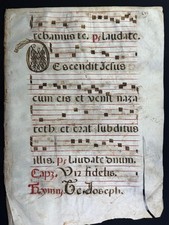 rchamus te. ps. Laudate.
Descendit Jesus
cum eis et venit naza
reth et erat subditus
illis. ps. Laudate dnum.
Cap. Vir fidelis.
Hymn. Te Joseph.